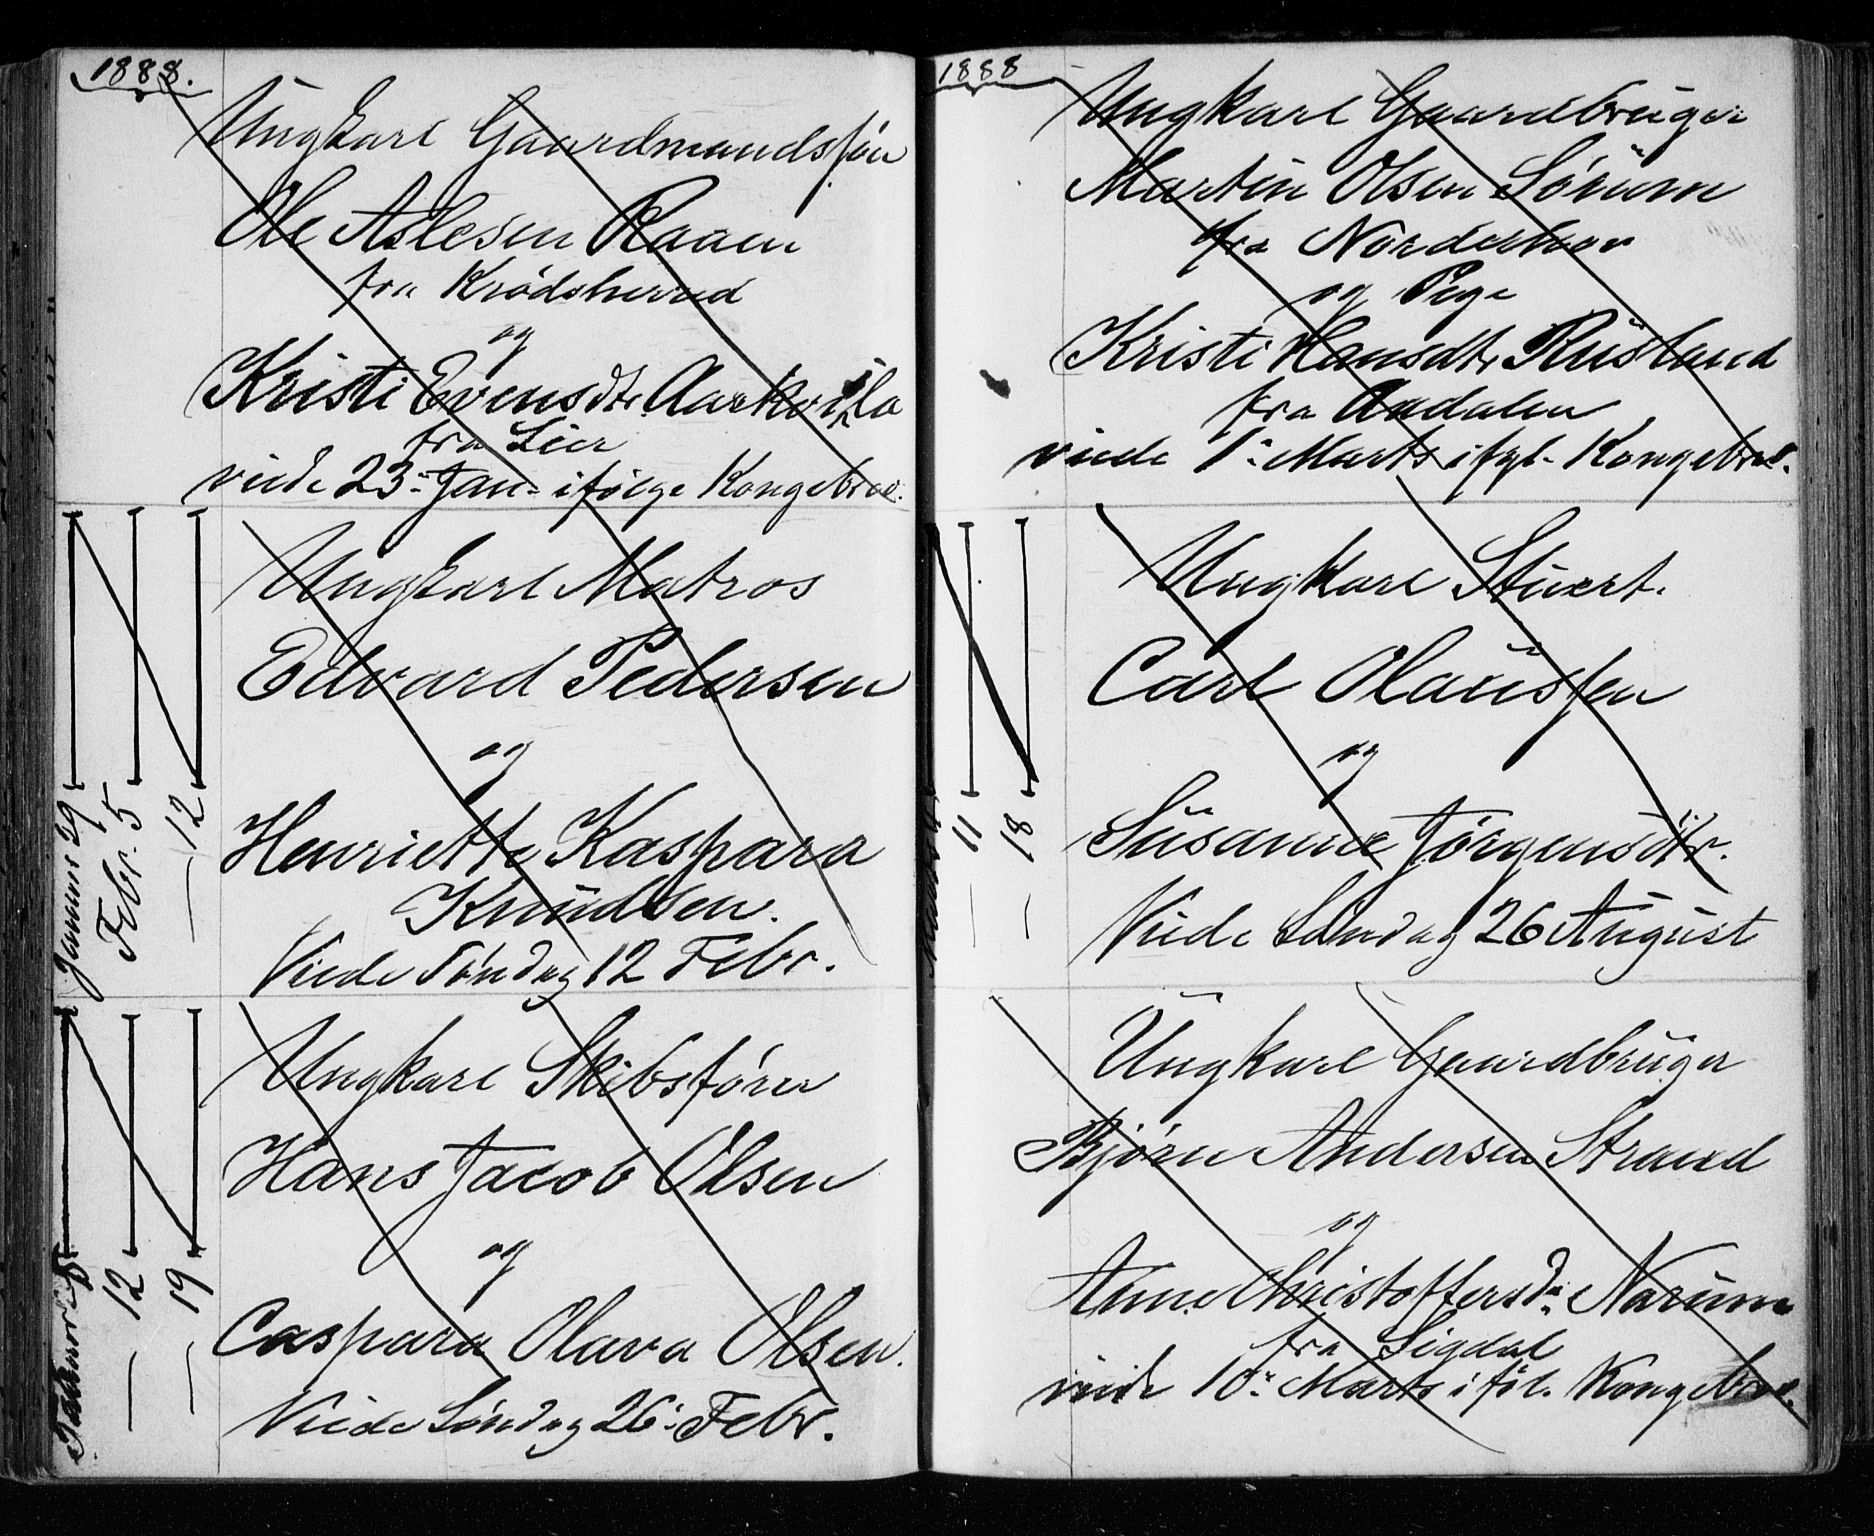 1888.
Ungkarl Gaardmandssøn
Ole Aslesen Raaen
fra Krødsherred
og
Kristi Evensdtr.
fra Lier
viede 23. Jan. ifølge Kongebrev.
Januar 29
Febr. 5
— 12
Ungkarl Matros
Edvard Pedersen
og
Henriette Kaspara
Knudsen.
Viede Søndag 12 Febr.
5
— 12
— 19
Ungkarl Skibsfører
Hans Jacob Olsen
og
Caspara Olava Olsen.
Viede Søndag 26. Febr.
1888
Ungkarl Gaardbruger
Martin Olsen Sørum
fra Norderhov
og Pige
Kristi Hansdtr Rustand
fra Aadalen
viede 1. Marts ifgl. Kongebrev.
— 11
— 18
Ungkarl Stuert.
Carl Olaussen
og
Susanne Jørgensdtr.
Viede Søndag 26 August
Ungkarl Gaardbruger
Bjørn Andersen Strand
og
Anne Christoffersd. Narum
fra Sigdal
viede 10. Marts iføl. Kongebrev.